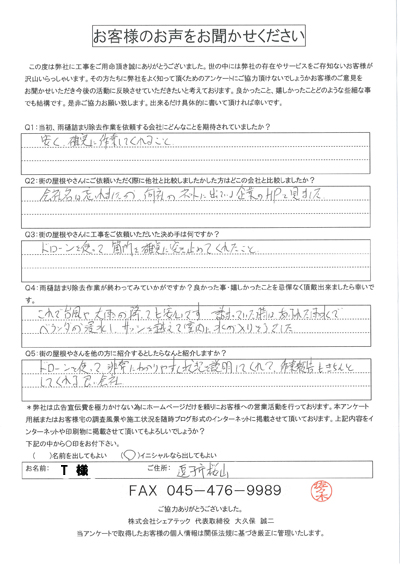 お客様のお声をお聞かせください
この度は弊社に工事をご用命頂き誠にありがとうございました。世の中には弊社の存在やサービスをご存知ないお客様が
沢山いらっしゃいます。その方たちに弊社をよく知って頂くためのアンケートにご協力頂けないでしょうかお客様のご意見を
お聞かせいただき今後の活動に反映させていただきたいと考えております。良かったこと、嬉しかったことどのような些細な事
でも結構です。是非ご協力お願い致します。出来るだけ具体的に書いて頂ければ幸いです。
Q1:当初、雨樋詰まり除去作業を依頼する会社にどんなことを期待されていましたか?
安く、確実に作業してくれること
Q2:街の屋根やさんにご依頼いただく際に他社と比較しましたかした方はどこの会社と比較しましたか?
会社名は忘れましたが、何社かネットに出ている企業のHPを見ました
Q3:街の屋根やさんに工事をご依頼いただいた決め手は何ですか?
ドローンを使って、箇所を確実に突き止めてくれたこと
Q4:雨樋詰まり除去作業が終わってみていかがですか?良かった事・嬉しかったことを忌憚なく頂戴出来ましたら幸いで
す。
これで台風や大雨が降っても安心です
ベランダが浸水し、サッシを越えて室内に水が入りそうでした
Q5:街の屋根やさんを他の方に紹介するとしたらなんと紹介しますか?
ドローンを使って、非常にわかりやすく状況を説明してくれて、作業報告もきちんと
してくれる良い会社
*弊社は広告宣伝費を極力かけない為にホームページだけを頼りにお客様への営業活動を行っております。本アンケート
用紙またはお客様宅の調査風景や施工状況を随時ブログ形式のインターネットに掲載させて頂いております。上記内容をイ
ンターネットや印刷物に掲載させて頂いてもよろしいでしょうか?
下記の中から〇印をお付下さい。
( )名前を出してもよい (〇)イニシャルなら出してもよい
お名前: T 様 ご住所: 逗子市桜山
FAX 045-476-9989
ご協力ありがとうございました。
株式会社シェアテック 代表取締役 大久保 誠二
当アンケートで取得したお客様の個人情報は関係法規に基づき厳正に管理いたします。
佐々木